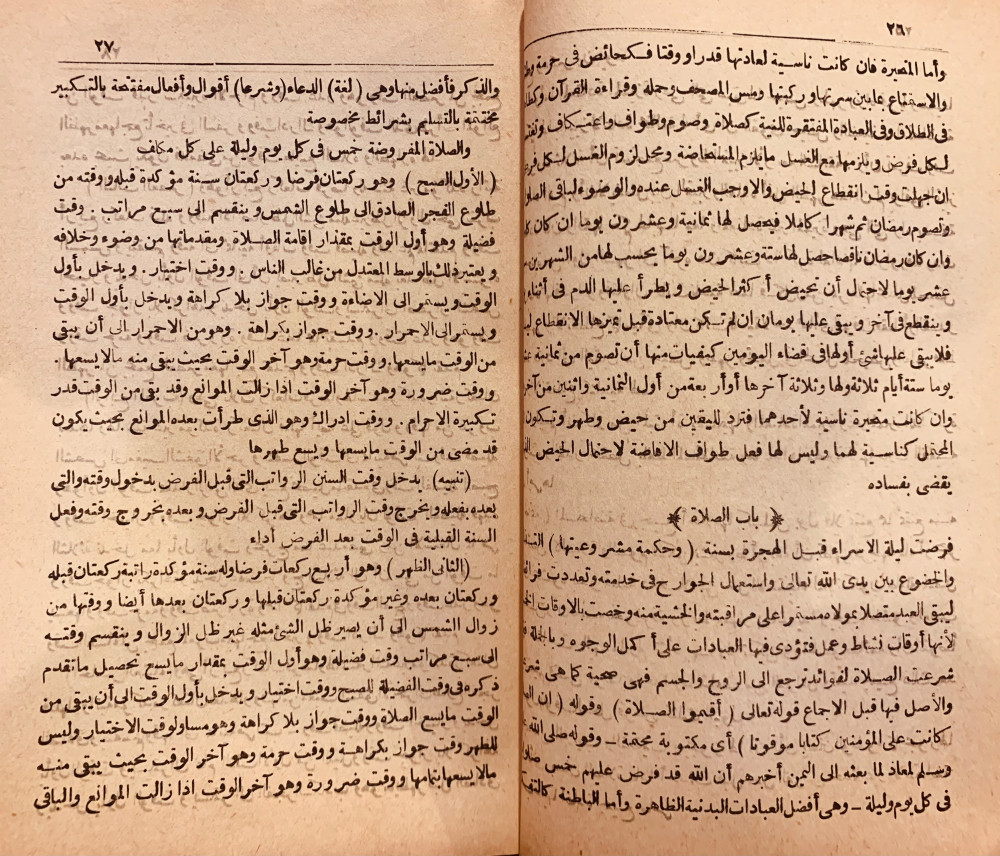 ٢٦
وأما المتحيرة فان كانت ناسية لعادتها قدرا ووقتا فكحائض فى حرمة
والاستمتاع بما بين سرتها وركبتها ومس المصحف وحمله وقراءة القرآن
فى الطلاق وفى العبادة المفتقرة للنية كصلاة وصوم وطواف واعتكاف
لكل فرض ويلزمها مع الغسل ما يلزم المستحاضة ومحل لزوم الغسل لكل
ان جهلت وقت انقطاع الحيض والاوجب الغسل عنده والوضوء لباقى
وتصوم رمضان ثم شهرا كاملا فيحصل لها ثمانية وعشرون يوما ان كان
وان كان رمضان ناقصا حصل لها ستة وعشرون يوما يحسب لها من الشهرين
عشر يوما لاحتمال أن تحيض أكثر الحيض ويطرأ عليها الدم فى أثناء
وينقطع فى آخر ويبقى عليها يومان ان لم تكن معتادة قبل تحيرها الانقطاع
فلا يبقى عليها شئ أولها فى قضاء اليومين كيفيات منها أن تصوم من ثمانية
يوما ستة أيام ثلاثة أولها وثلاثة آخرها أو أربعة من أول الثمانية واثنين من
وان كانت متحيرة ناسية لأحدهما فترد لليقين من حيض وطهر وتكون
المحتمل كناسية لهما وليس لها فعل طواف الافاضة لاحتمال الحيض
يقضى بفساده
﴿ باب الصلاة ﴾
فرضت ليلة الاسراء قبل الهجرة بسنة ( وحكمة مشروعيتها )
والخضوع بين يدى الله تعالى واستعمال الجوارح فى خدمته وتعددت
ليبقى العبد متصلا بمولاه مستمرا على مراقبته والخشية منه وخصت بالاوقات
لأنها أوقات نشاط وعمل فتؤدى فيها العبادات على أكمل الوجوه وبالجملة
شرعت الصلاة لفوائد ترجع الى الروح والجسم فهى صحية كما هى
والأصل فيها قبل الاجماع قوله تعالى ( أقيموا الصلاة ) وقوله ( ان
كانت على المؤمنين كتابا موقوتا ) أى مكتوبة محتمة ــ وقوله صلى الله
وسلم لمعاذ لما بعثه الى اليمن أخبرهم أن الله قد فرض عليهم خمس
فى كل يوم وليلة ــ وهى أفضل العبادات البدنية الظاهرة وأما الباطنة
٢٧
والذكر فأفضل منها وهى ( لغة ) الدعاء (وشرعا) أقوال وأفعال مفتتحة بالتكبير
مختتمة بالتسليم بشرائط مخصوصة
والصلاة المفروضة خمس فى كل يوم وليلة على كل مكلف
( الأول الصبح ) وهو ركعتان فرضا وركعتان سنة مؤكدة قبله ووقته من
طلوع الفجر الصادق الى طلوع الشمس وينقسم الى سبع مراتب . وقت
فضيلة وهو أول الوقت بمقدار اقامة الصلاة ومقدماتها من وضوء وخلافه
ويعتبر ذلك بالوسط المعتدل من غالب الناس . ووقت اختيار . ويدخل بأول
الوقت ويستمر الى الاضاءة ووقت جواز بلا كراهة ويدخل بأول الوقت
ويستمر الى الاحمرار . ووقت جواز بكراهة . وهو من الاحمرار الى أن يبقى
من الوقت ما يسعها . ووقت حرمة وهو آخر الوقت بحيث يبقى منه مالا يسعها .
ووقت ضرورة وهو آخر الوقت اذا زالت الموانع وقد بقى من الوقت قدر
تكبيرة الاحرام . ووقت ادراك وهو الذى طرأت بعده الموانع بحيث يكون
قد مضى من الوقت ما يسعها ويسع طهرها
(تنبيه) يدخل وقت السنن الرواتب التى قبل الفرض بدخول وقته والتى
بعده بفعله ويخرج وقت الرواتب التى قبل الفرض وبعده بخروج وقته وفعل
السنة القبلية فى الوقت بعد الفرض أداء
(الثانى الظهر ) وهو أربع ركعات فرضا وله سنة مؤكدة راتبة ركعتان قبله
وركعتان بعده وغير مؤكدة ركعتان قبلها وركعتان بعدها أيضا ووقتها من
زوال الشمس الى أن يصير ظل الشئ مثله غير ظل الزوال وينقسم وقته
الى سبع مراتب وقت فضيلة وهو أول الوقت بمقدار ما يسع تحصيل ما تقدم
ذكره فى وقت الفضيلة للصبح ووقت اختيار ويدخل بأول الوقت الى أن يبقى من
الوقت ما يسع الصلاة ووقت جواز بلا كراهة وهو مساو لوقت الاختيار وليس
للظهر وقت جواز بكراهة ووقت حرمة وهو آخر الوقت بحيث يبقى منه
مالا يسعها بتمامها ووقت ضرورة وهو آخر الوقت اذا زالت الموانع والباقى